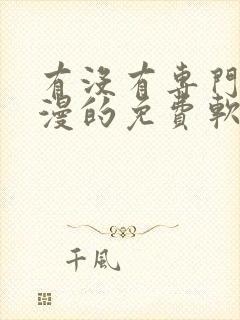 有沒有專門
漫的免費軟
千風